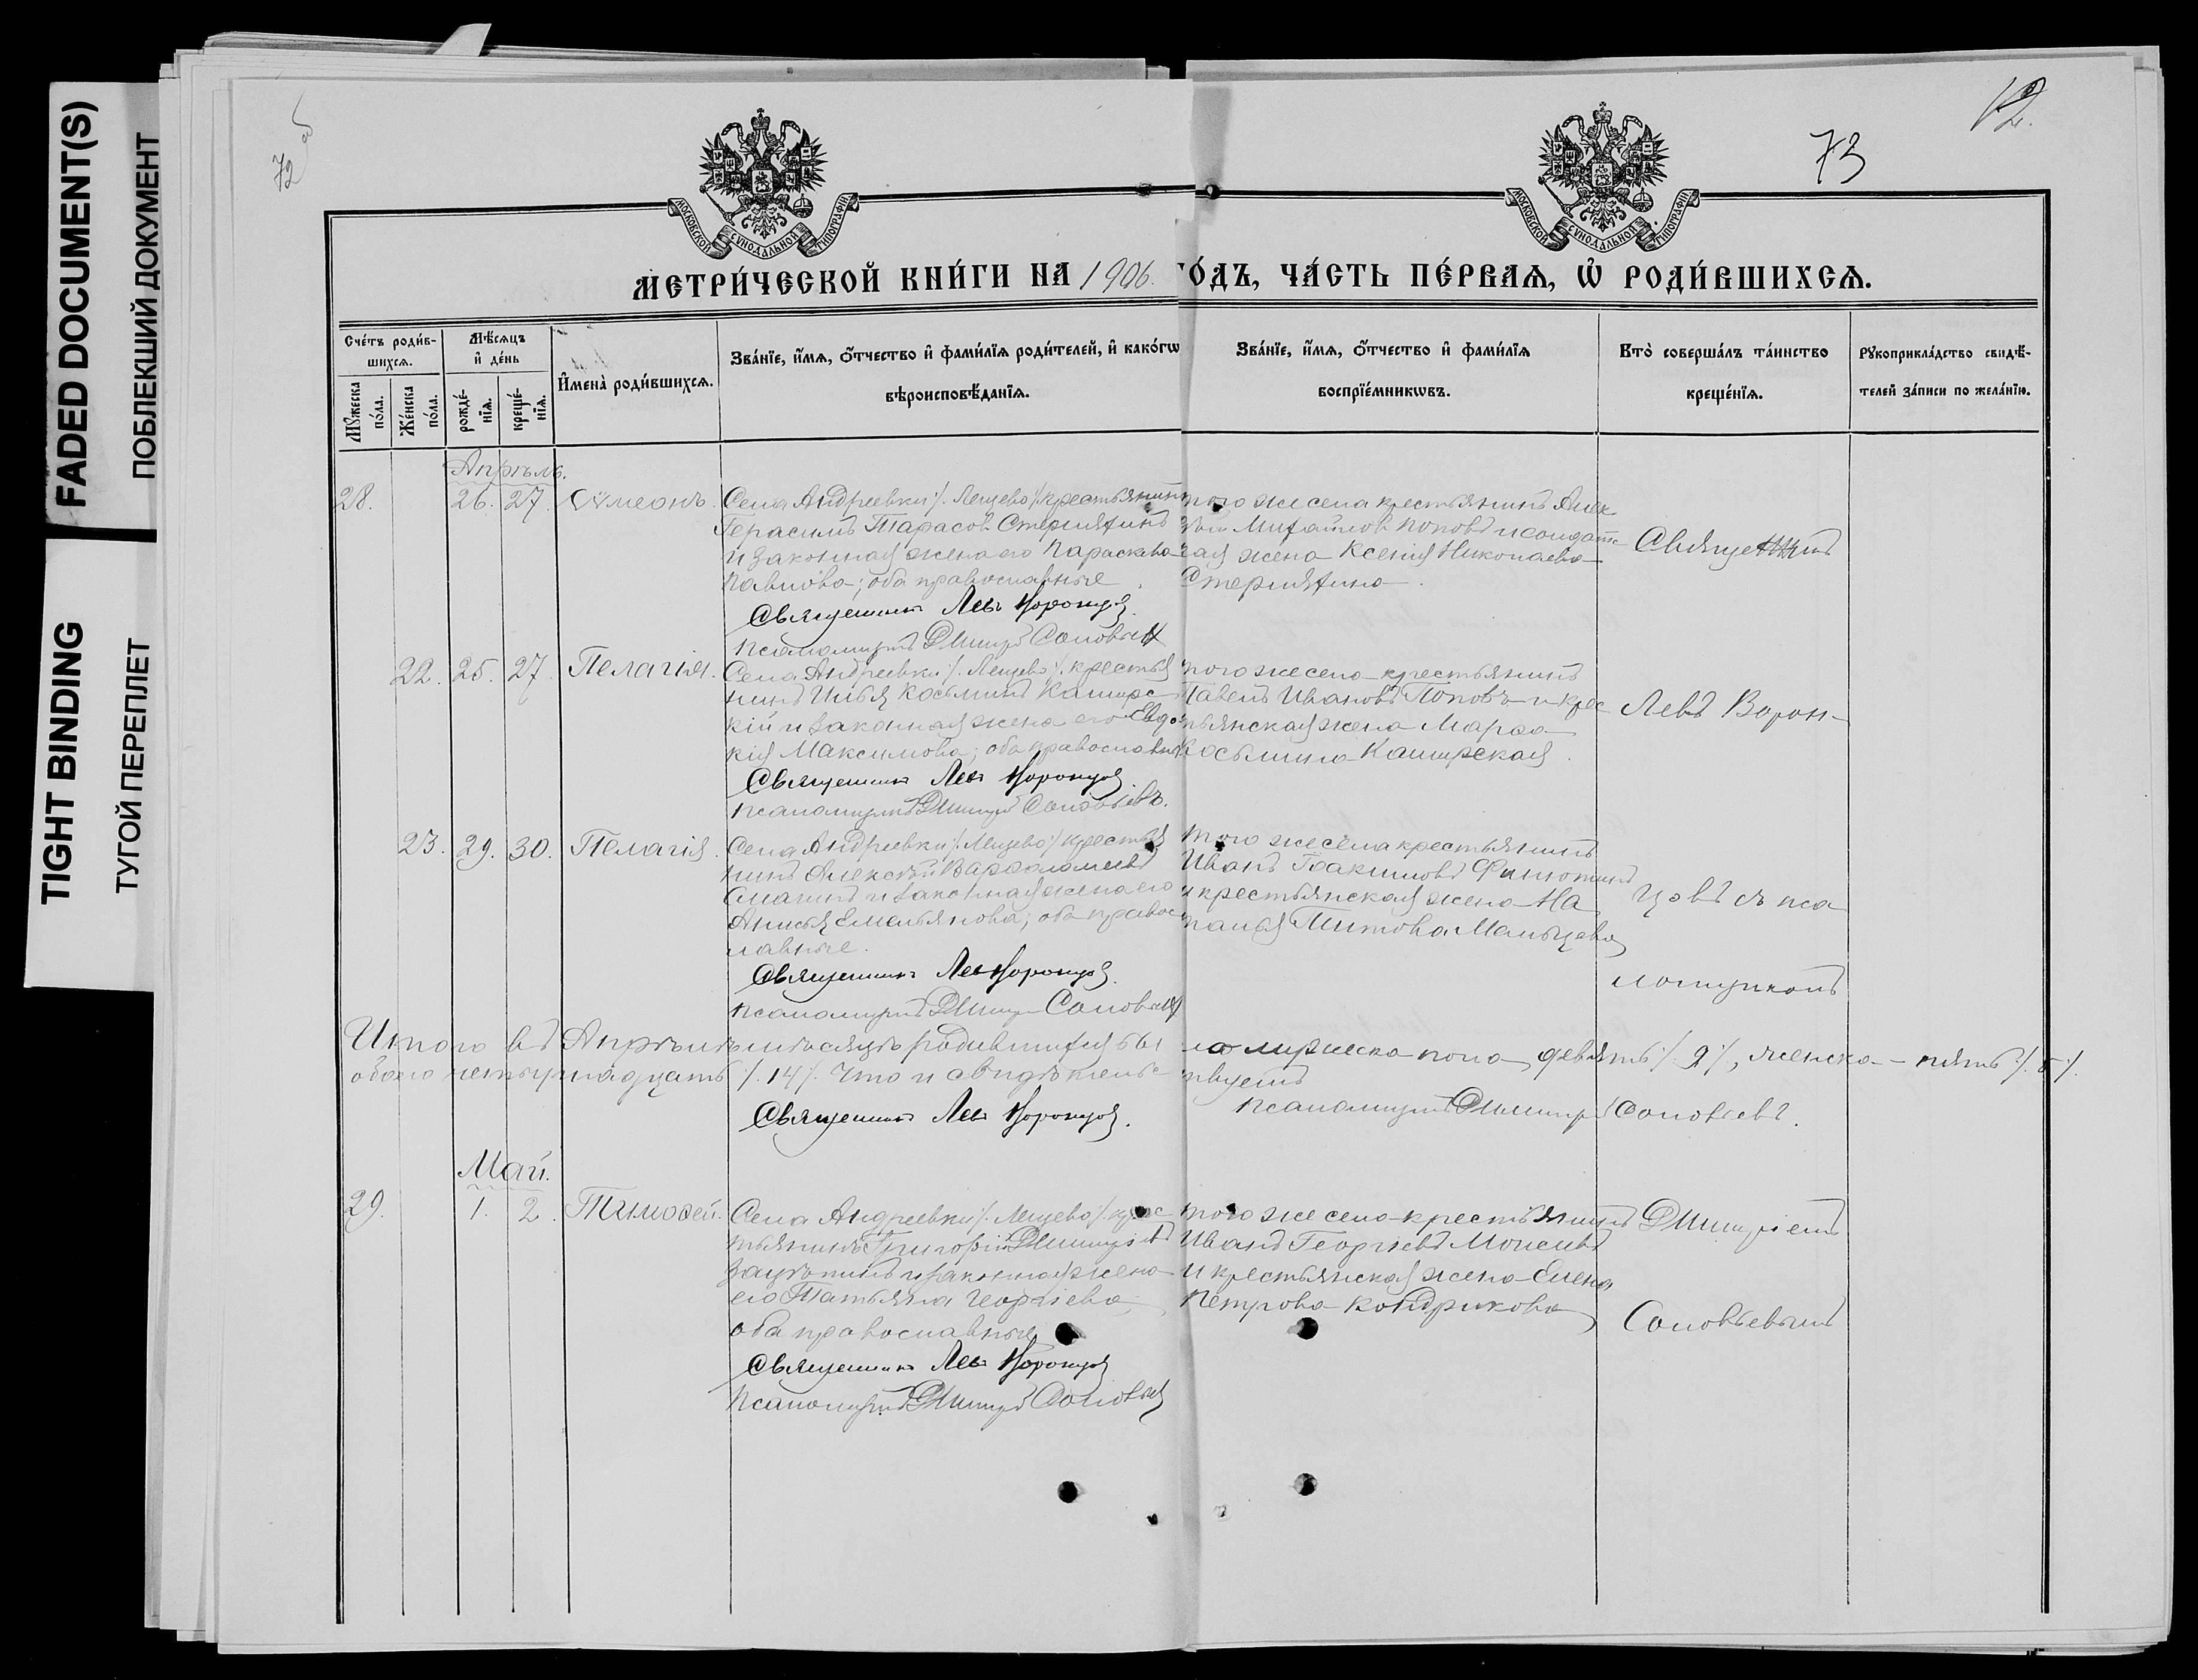 FADED DOCUMENT(S)
ПОБЛЕКШИЙ ДОКУМЕНТ
TIGHT BINDING
ТУГОЙ ПЕРЕПЛЕТ
72 об
73
12.
МОСКОВСКОЙ СѴНОДАЛЬНОЙ ТИПОГРАФІИ
МОСКОВСКОЙ СѴНОДАЛЬНОЙ ТИПОГРАФІИ
МЕТРИ́ЧЕСКОЙ КНИ́ГИ НА 1906 ГО́ДЪ, ЧА́СТЬ ПЕ́РВАѦ, Ѡ РОДИ́ВШИХСѦ.
Сче́тъ роди́в-
шихсѧ.
Мꙋжеска по́ла.
Же́нска по́ла.
Мѣ́сяцъ
и де́нь
рожде́-
нїѧ.
креще́-
нїѧ.
Имена̀ роди́вшихсѧ.
Зва́нїе, и́мѧ, о́тчество и фами́лїѧ роди́телей, и како́гѡ
вѣроисповѣ́данїѧ.
Зва́нїе, и́мѧ, о́тчество и фами́лїѧ
воспрїе́мникѡвъ.
Кто̀ соверша́лъ та́инство
креще́нїѧ.
Рꙋкоприкла́дство свидѣ́-
телей за́писи по жела́нїю.
Апрѣль.
28. 26. 27. Сѵмеонъ.
Села Андреевки /. Лещево /. крестьянинъ
Герасимъ Тарасовъ Стерляхинъ
и законная жена его Параскева
Павлова; оба православные
Священникъ Левъ Воронцов.
Псаломщикъ Дмитрій Соловьевъ
того же села крестьянинъ Алек-
Михайловъ Поповъ и солдатс-
кая жена Ксенія Николаева
Стерляхина.
22. 25. 27. Пелагія.
Села Андреевки /. Лещево /. крестья
нинъ Илья Косьминъ Каширс-
кій и законная жена его Евдо-
кія Максимова; оба православные
Священникъ Левъ Воронцов.
Псаломщикъ Дмитрій Соловьевъ.
того же села крестьянинъ
Павелъ Ивановъ Поповъ и крес-
тьянская жена Марѳа
Косьмина Каширская.
23. 29. 30. Пелагія.
Села Андреевки /. Лещево /. крестья
нинъ Алексѣй Варѳоломеевъ
и законная жена его
Анисья Емельянова; оба правос-
лавные.
Священникъ Левъ Воронцов.
Псаломщикъ Дмитрій Соловьевъ
того же села крестьянинъ
Иванъ Іоакимовъ
и крестьянская жена На-
талья Титова Мальцева
Священникомъ
Левъ Ворон-
цовъ съ пса
ломщикомъ
Итого въ Апрѣлѣ мѣсяцѣ родившихся бы-
ло мужеска пола девять /. 9 /., женска – пять /. 5 /.
обоего четырнадцать /. 14 /. Что и свидѣтельс-
твуетъ
Священникъ Левъ Воронцов.
Псаломщикъ Дмитрій Соловьевъ.
Май.
29. 1. 2. Тимоѳей.
Села Андреевки /. Лещево /. крес-
тьянинъ Григорій Дмитріевъ
и законная жена
его Татьяна Георгіева,
оба православные
Священникъ Левъ Воронцов
Псаломщикъ Дмитрій Соловьев
того же села крестьянинъ
Иванъ Георгіевъ Моисеевъ
и крестьянская жена Елена
Петрова Кондрикова
Дмитріемъ
Соловьевымъ